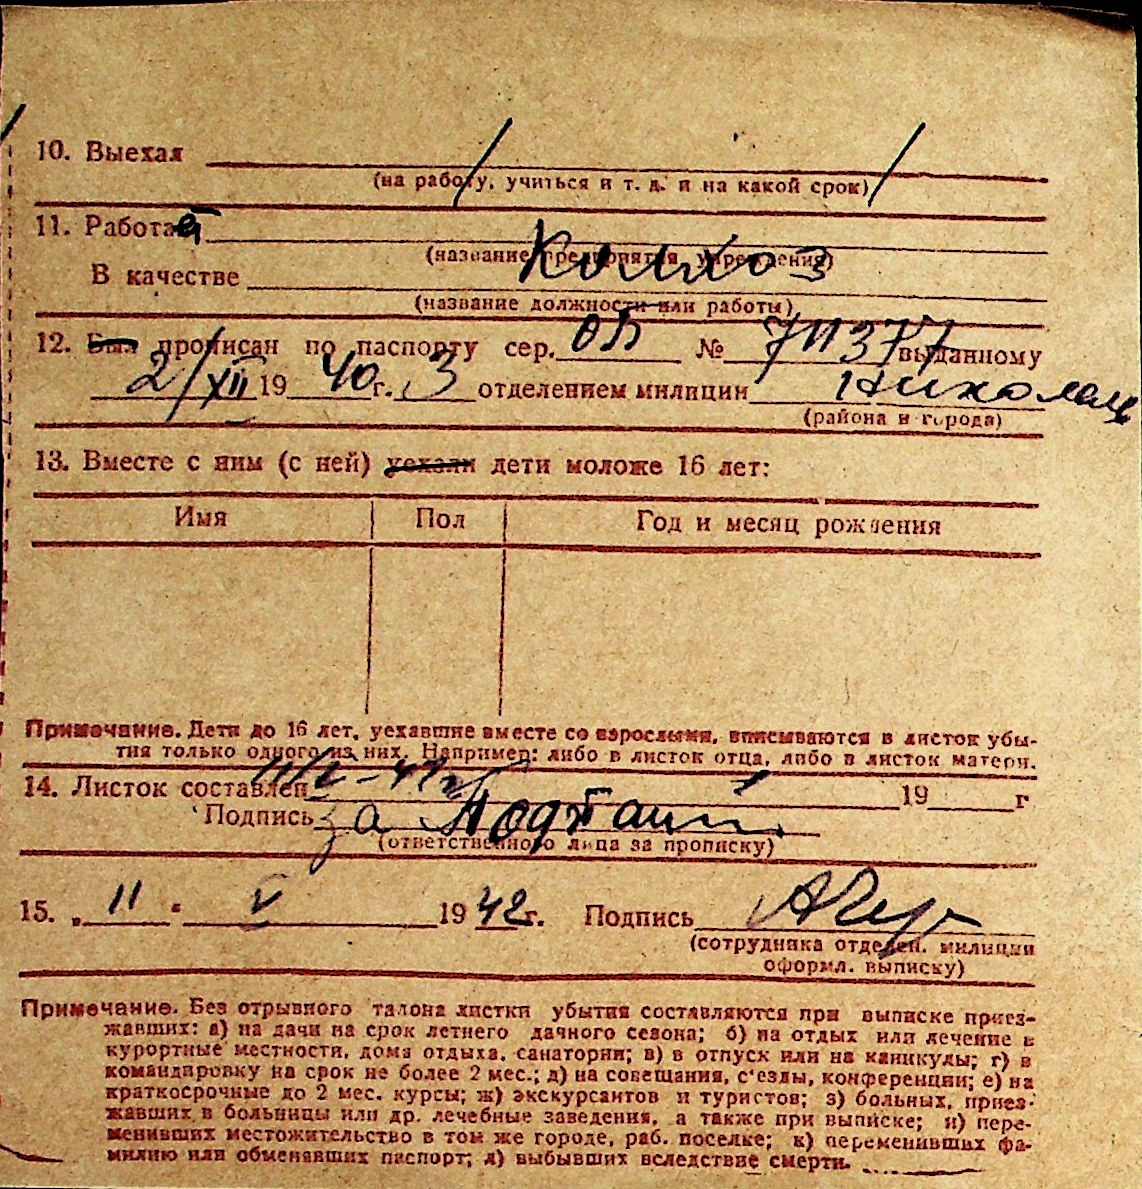 10. Выехал
(на работу, учиться и т. д. и на какой срок)
11. Работает
Колхоз
(название предприятия, учреждения)
В качестве
(название должности или работы)
12. Был прописан по паспорту сер. ОЛ № 711377 выданному
2/XII 1940 г. 3 отделением милиции
(района и города)
13. Вместе с ним (с ней) уехали дети моложе 16 лет:
Имя Пол Год и месяц рождения
Примечание. Дети до 16 лет, уехавшие вместе со взрослыми, вписываются в листок убы-
тия только одного из них. Например: либо в листок отца, либо в листок матери.
14. Листок составлен 19 г
Подпись за
(ответственного лица за прописку)
15. „ 11 “ V 1942г. Подпись
(сотрудника отделен. милиции
оформл. выписку)
Примечание. Без отрывного талона листки убытия составляются при выписке приез-
жавших: а) на дачи на срок летнего дачного сезона; б) на отдых или лечение в
курортные местности, дома отдыха, санатории; в) в отпуск или на каникулы; г) в
командировку на срок не более 2 мес.; д) на совещания, с'езды, конференции; е) на
краткосрочные до 2 мес. курсы; ж) экскурсантов и туристов; з) больных, приез-
жавших в больницы или др. лечебные заведения, а также при выписке; и) пере-
менивших местожительство в том же городе, раб. поселке; к) переменивших фа-
милию или обменявших паспорт; л) выбывших вследствие смерти.